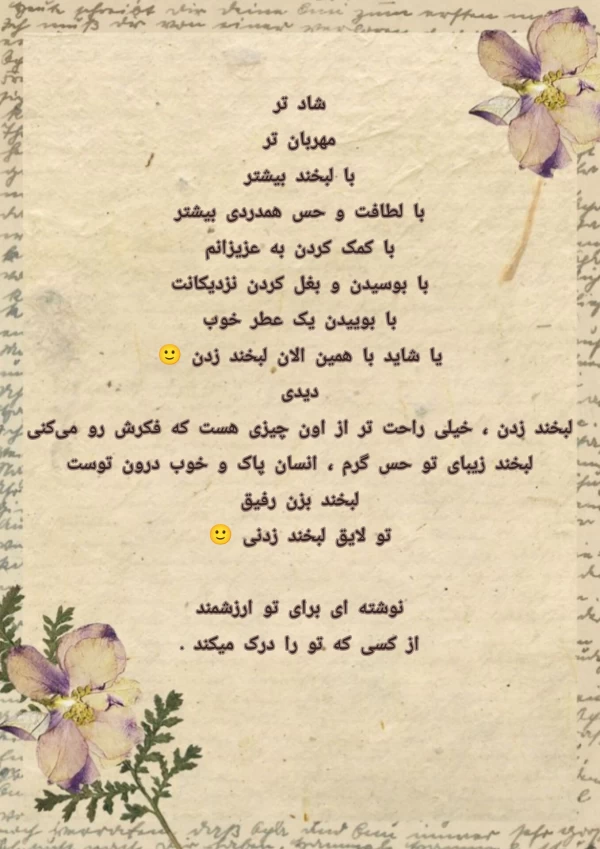 شاد تر
مهربان تر
با لبخند بیشتر
با لطافت و حس همدردی بیشتر
با کمک کردن به عزیزانم
با بوسیدن و بغل کردن نزدیکانت
با بوییدن یک عطر خوب
یا شاید با همین الان لبخند زدن 🙂
دیدی
لبخند زدن ، خیلی راحت تر از اون چیزی هست که فکرش رو می‌کنی
لبخند زیبای تو حس گرم ، انسان پاک و خوب درون توست
لبخند بزن رفیق
تو لایق لبخند زدنی 🙂
نوشته ای برای تو ارزشمند
از کسی که تو را درک میکند .